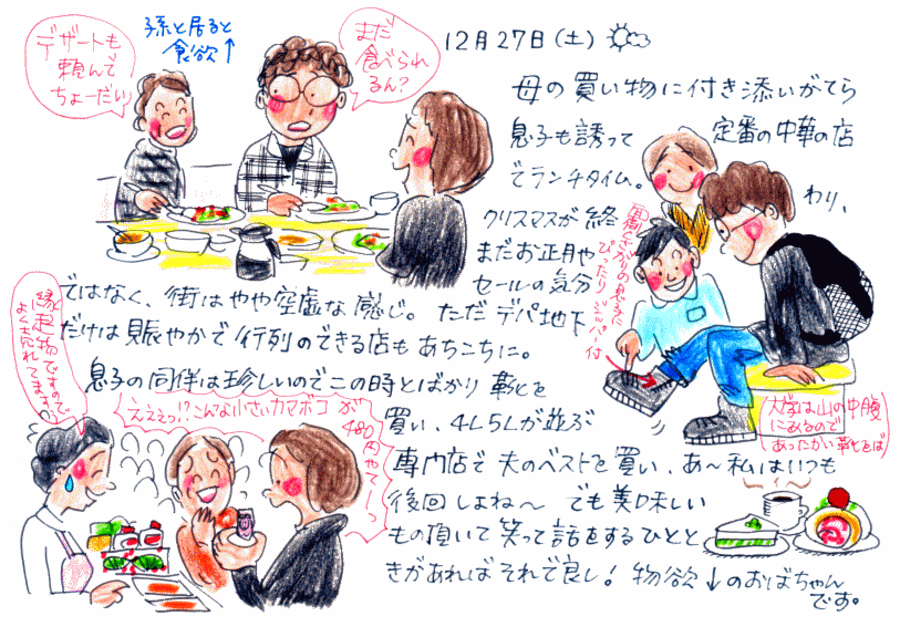 12月27日(土)
母の買い物に付き添いがてら
息子も誘って 定番の中華の店
でランチタイム。
クリスマスが終 わり、
まだお正月や
セールの気分
ではなく、街はやや空虚な感じ。ただデパ地下
だけは賑やかで行列のできる店もあちこちに。
息子の同伴は珍しいのでこの時とばかり靴を
買い、4L5Lが並ぶ
専門店で夫のベストを買い、あ〜私はいつも
後回しよね〜 でも美味しい
もの頂いて笑って話をするひとと
きがあればそれで良し! 物欲↓のおばちゃん
です。
デザートも
頼んで
ちょーだい
孫と居ると
食欲↑
まだ
食べられ
るん?
面倒くさがりの息子に
ぴったり ジッパー付
(大学は山の中腹
にあるので
あったかい靴をば)
縁起物ですので
よく売れてますよ
えええっ!?こんな小さいカマボコが
480円やて〜っ